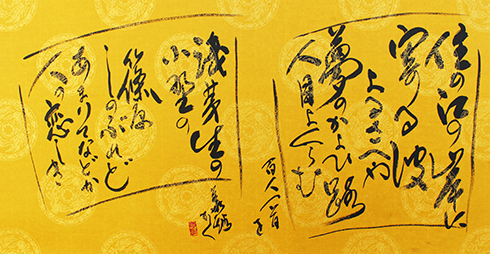 住の江の岸に
寄る波
よるさへや
夢のかよひ路
人目よくらむ
百人一首を
浅茅生の
小野の
篠原
しのぶれど
あまりてなどか
人の恋しき